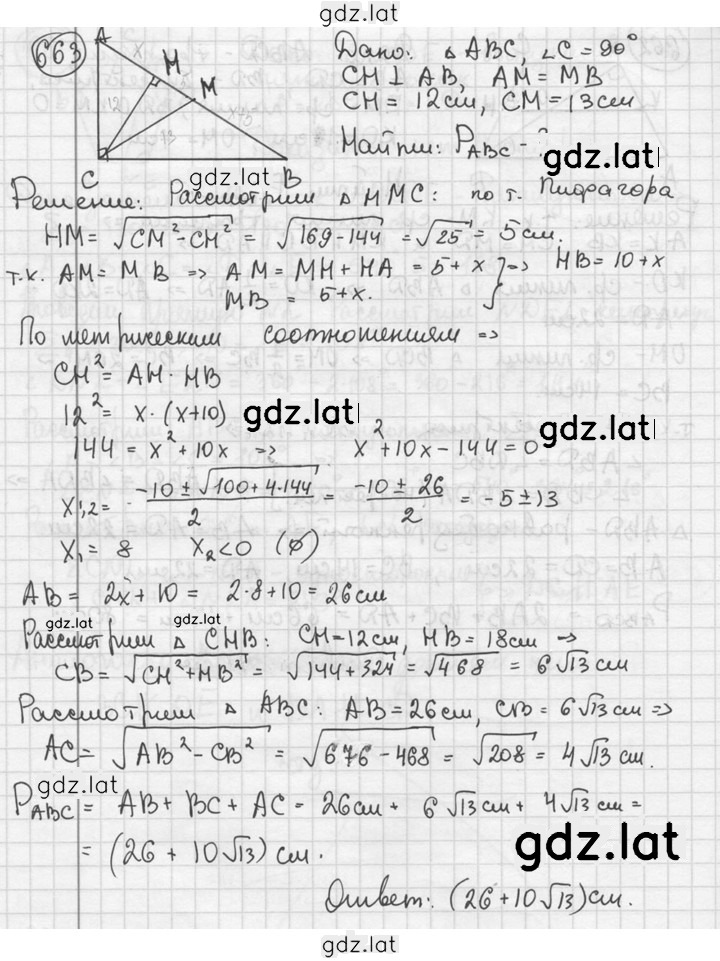 gdz.lat
663
A
H
M
12
13
x+5
C
B
gdz.lat
Дано: △ ABC, ∠C = 90°
CH ⊥ AB, AM = MB
CH = 12 см, CM = 13 см
Найти: P_ABC - ?
gdz.lat
Решение: Рассмотрим △ HMC: по т. Пифагора
HM = √(CM² - CH²) = √(169 - 144) = √25 = 5 см.
т.к. AM = MB => AM = MH + HA = 5 + x } => HB = 10 + x
MB = 5 + x.
По метрическим соотношениям =>
CH² = AH · HB
12² = x · (x+10)
gdz.lat
144 = x² + 10x => x² + 10x - 144 = 0
x1,2 = (-10 ± √(100 + 4·144))/2 = (-10 ± 26)/2 = -5 ± 13
x₁ = 8 x₂ < 0 (∅)
AB = 2x + 10 = 2·8 + 10 = 26 см
gdz.lat
gdz.lat
Рассмотрим △ CHB: CH = 12 см, HB = 18 см =>
CB = √(CH² + HB²) = √(144 + 324) = √468 = 6√13 см
Рассмотрим △ ABC: AB = 26 см, CB = 6√13 см =>
AC = √(AB² - CB²) = √(676 - 468) = √208 = 4√13 см.
gdz.lat
P_ABC = AB + BC + AC = 26 см + 6√13 см + 4√13 см =
= (26 + 10√13) см.
gdz.lat
Ответ: (26 + 10√13) см.
gdz.lat